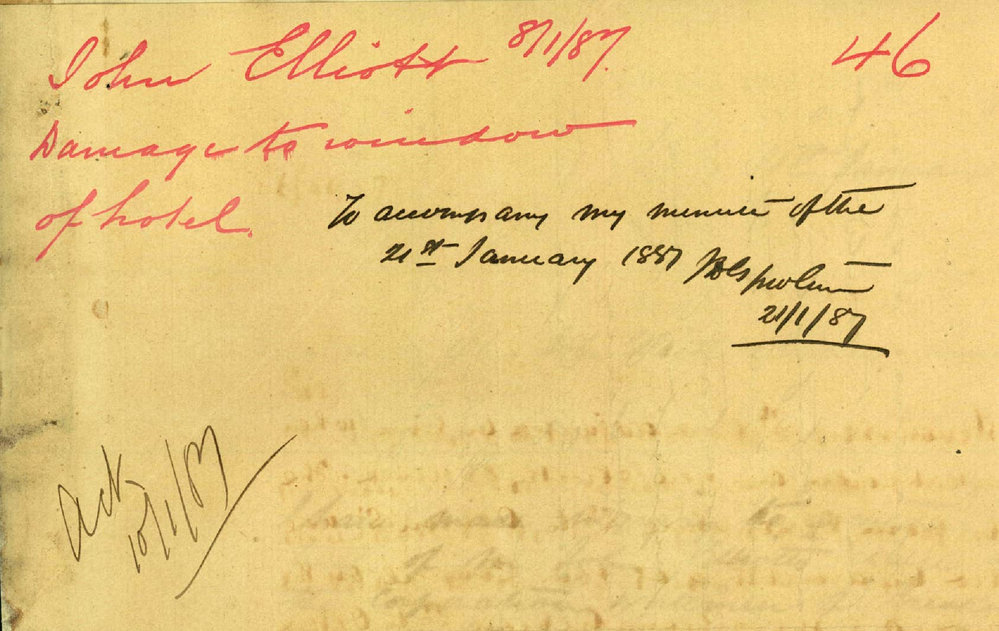 John Elliott 8/1/87.
46
Damage to window
of hotel.
To accompany my minute of the
21st January 1887
21/1/87
Ack
10/1/87